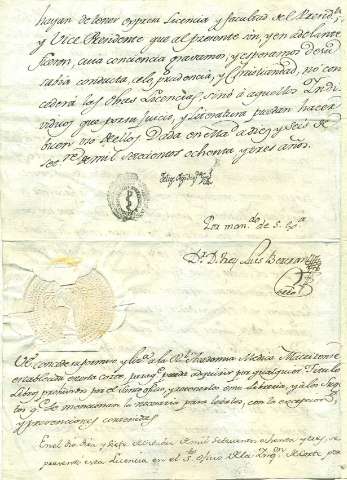 hayan de tener expresa Licencia y facultad del Presid.te
y Vice Presidente que al presente son, y en adelante
fueren, cuia conciencia gravamos, y esperamos de su
sabia conducta, celo, prudencia, y Christiandad, no con
cederá las dhas Licencias, sino á aquellos Indi
viduos que por su juicio, y Literatura puedan hacer
buen uso de ellos. Dada en Mad.d a diez y seis de
de mil setecientos ochenta y tres años.
Por man.do de S. Yll.a
D.r D. Luis
Se concede permiso y lic.a a la R.l Academia Medico Matritense
establecida en esta Corte, para q.e pueda adquirir por qualquier titulo
Libros prohividos por el Santo Oficio, y tenerlos en su Libreria, y a los Suge
tos q.e se mencionan lo necesario para leerlos, con la excepcion
y prevenciones contenidas
En el dia diez y siete de mil setecientos ochenta y tres, se
presentó esta Licencia en el S.to Oficio de la Inq.on de Corte por